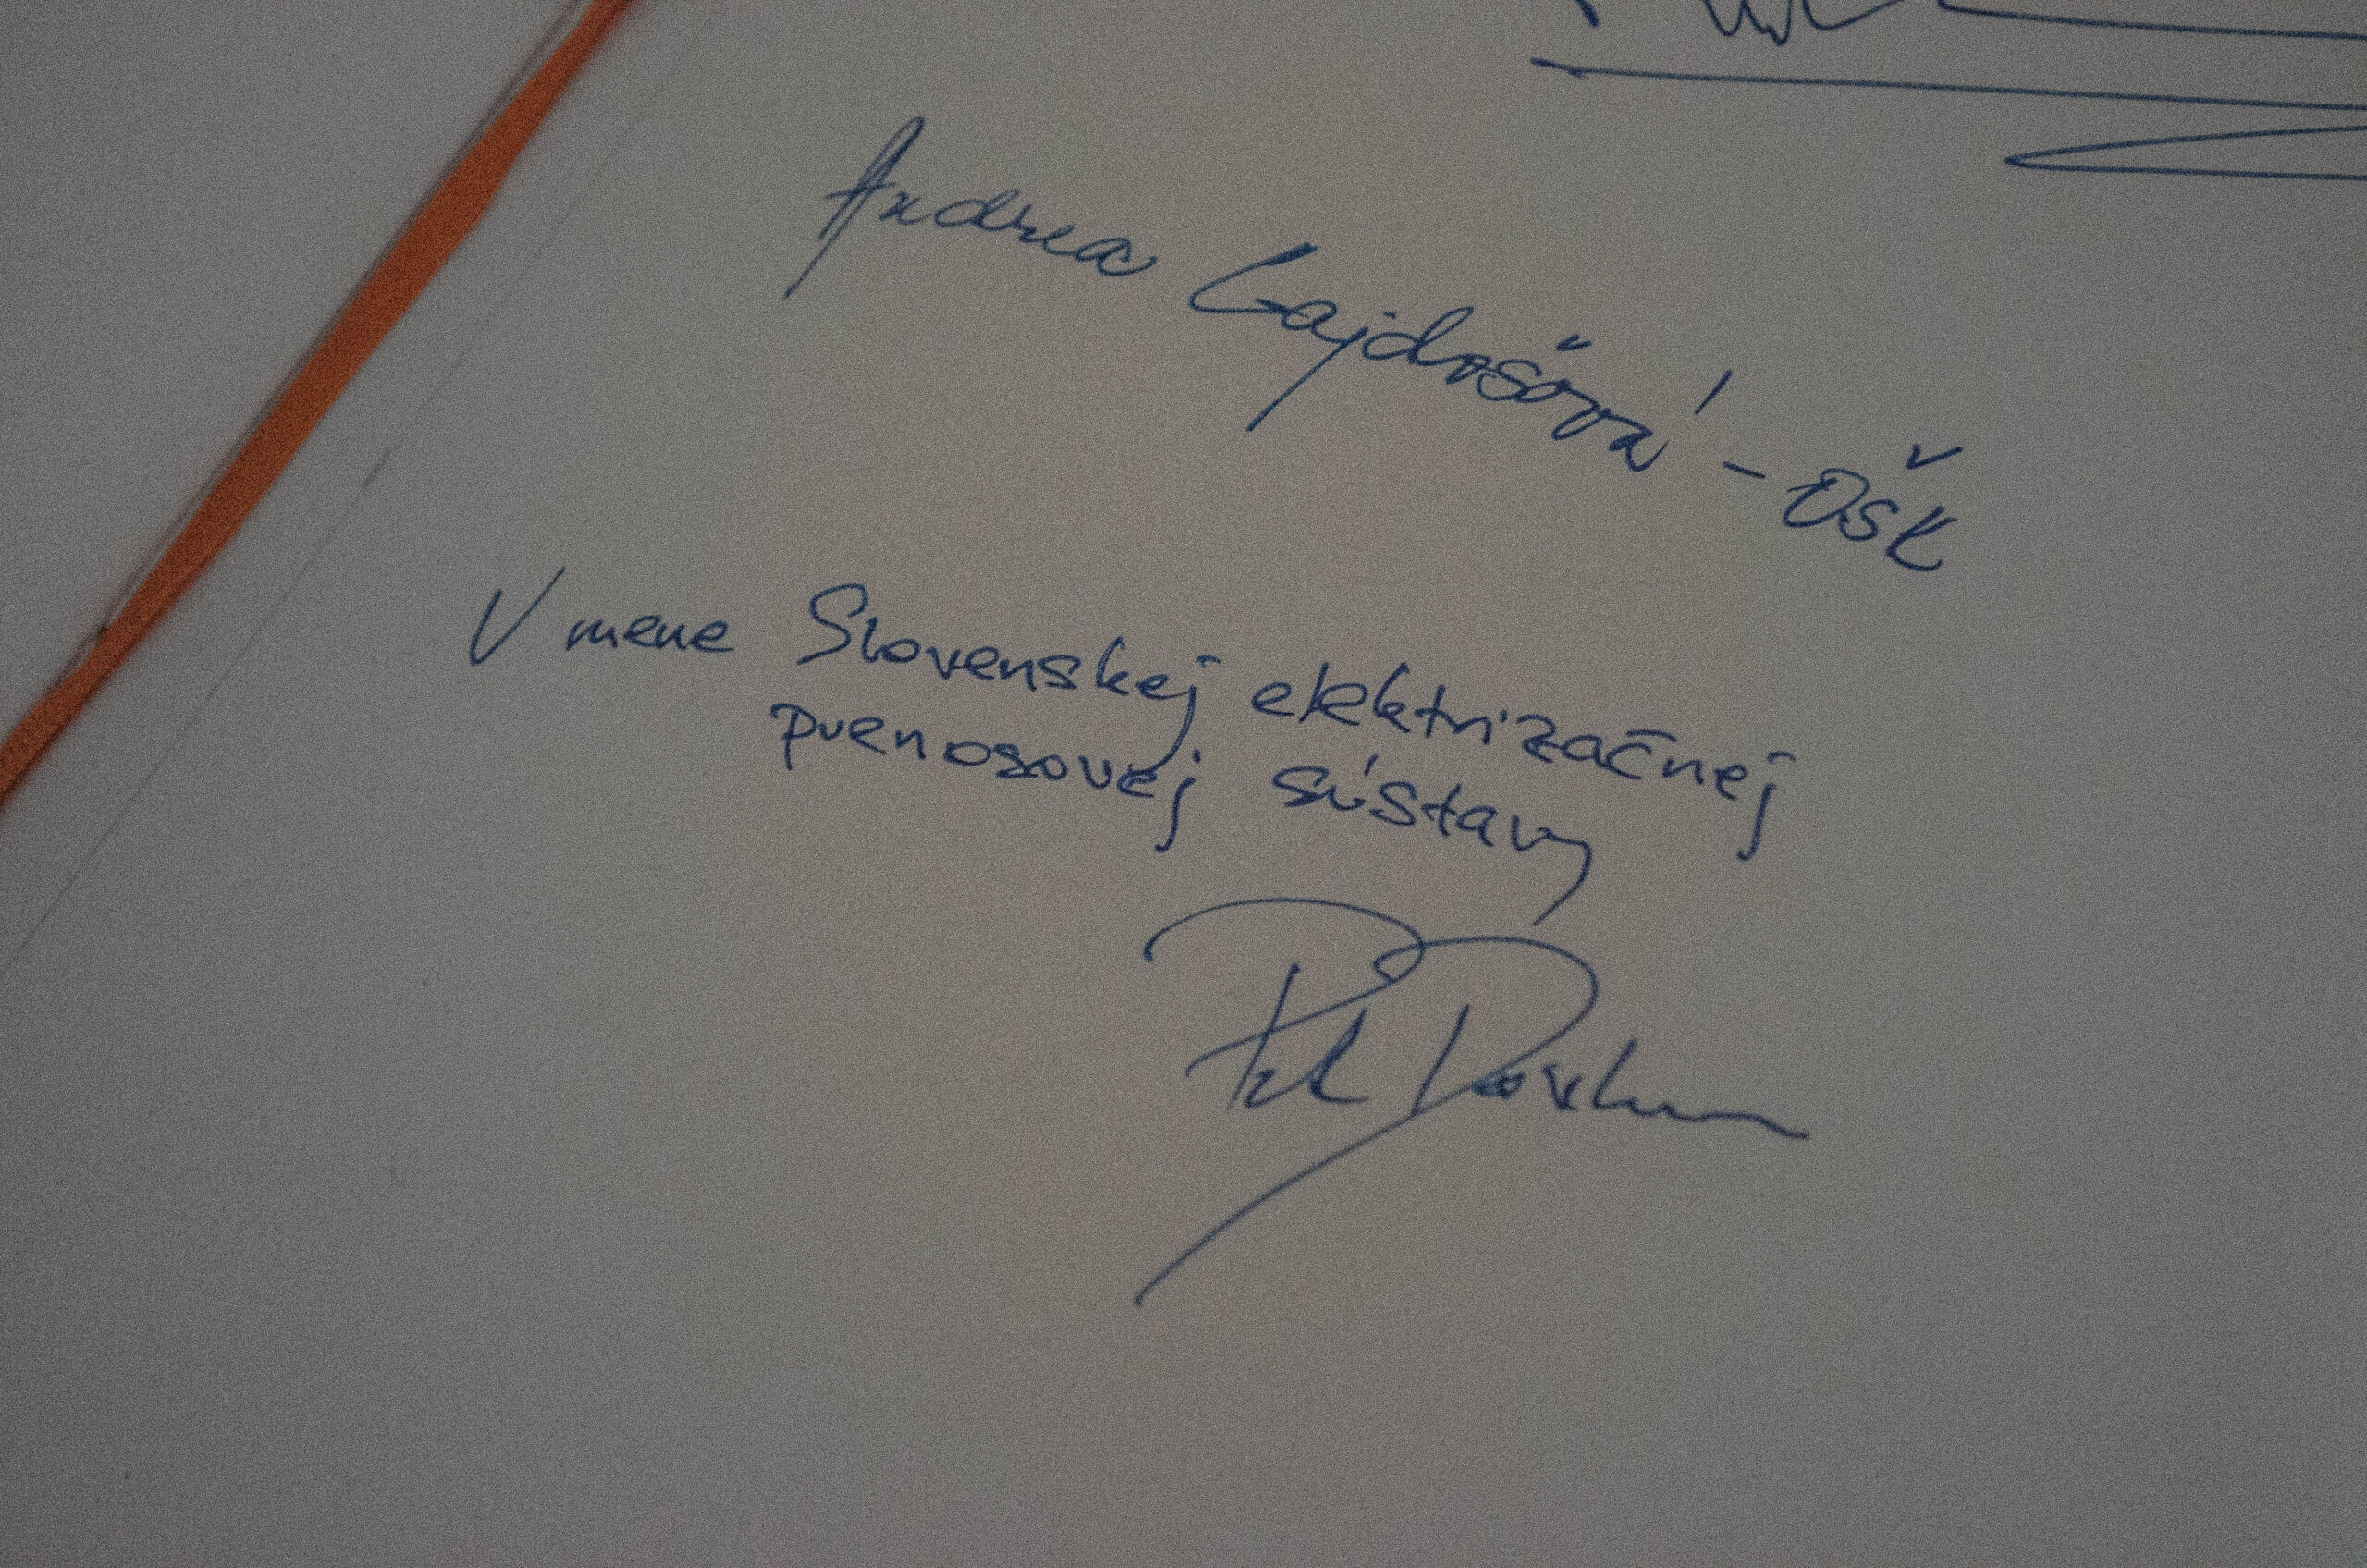 Andrea Gajdošová - OŠK
V mene Slovenskej elektrizačnej
prenosovej sústavy